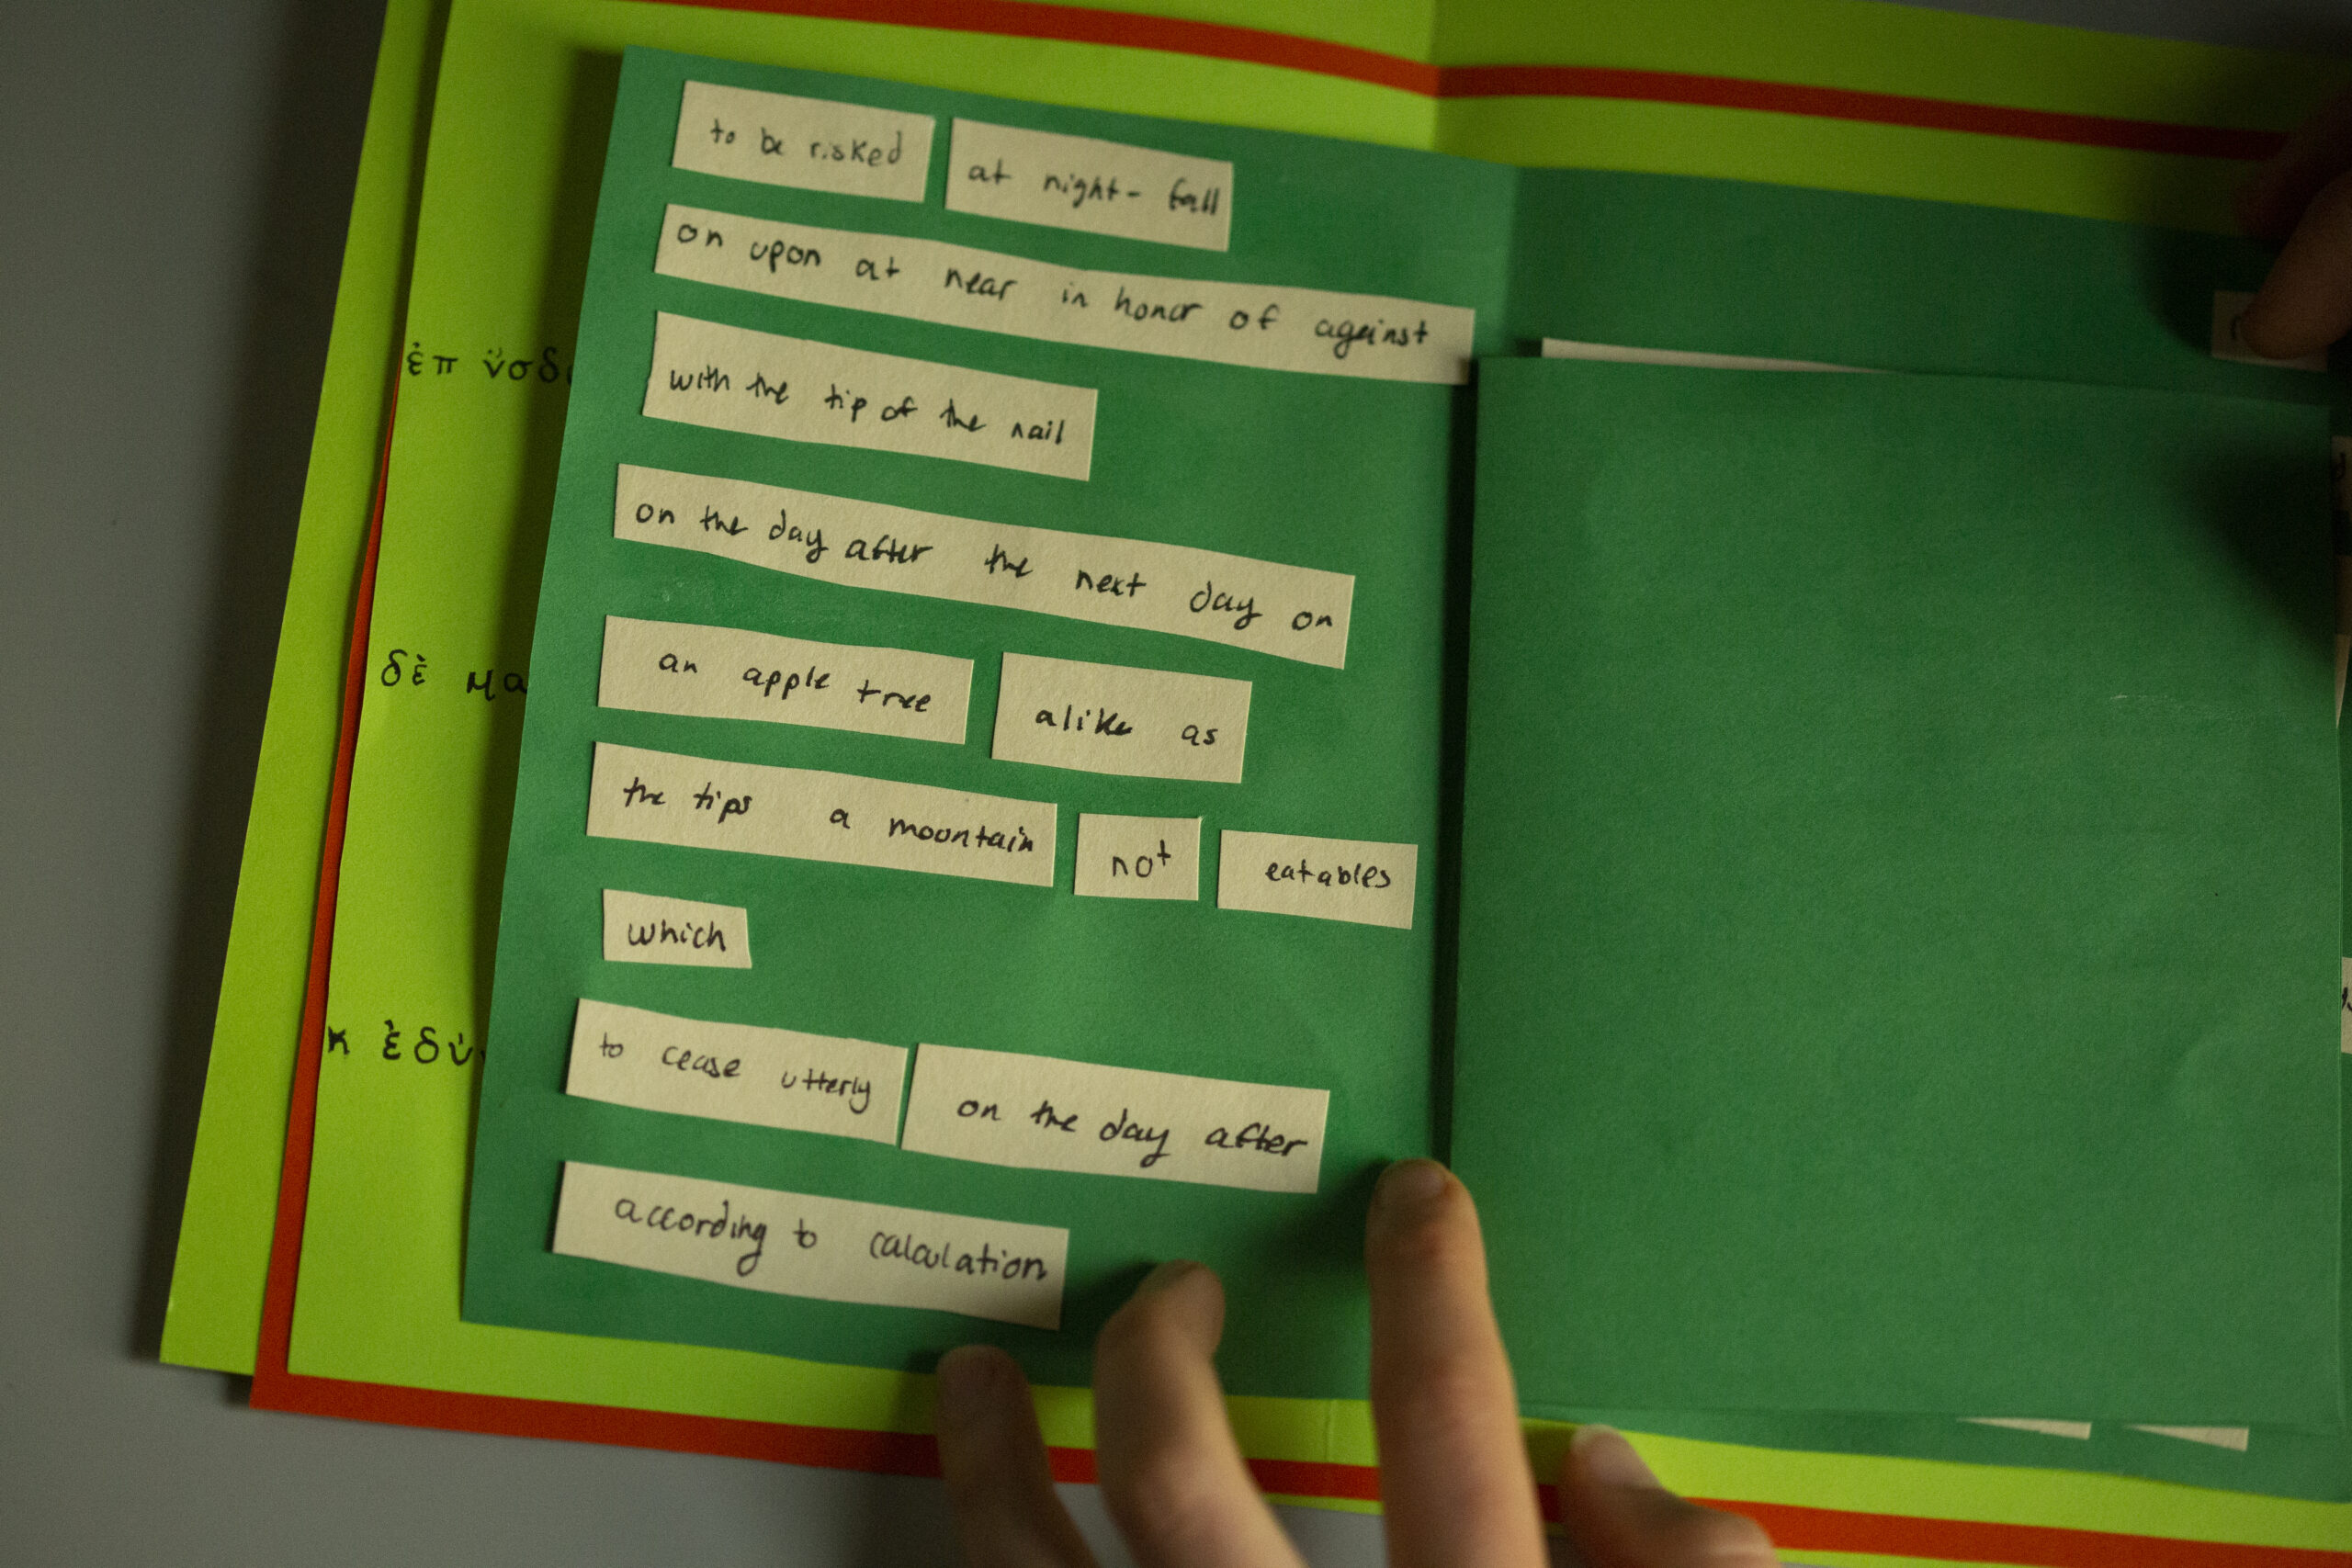 to be risked at night-fall
on upon at near in honor of against
with the tip of the nail
on the day after the next day on
an apple tree alike as
the tips a mountain not eatables
which
to cease utterly on the day after
according to calculation
ἐπ
δὲ μα
κ ἐδύ